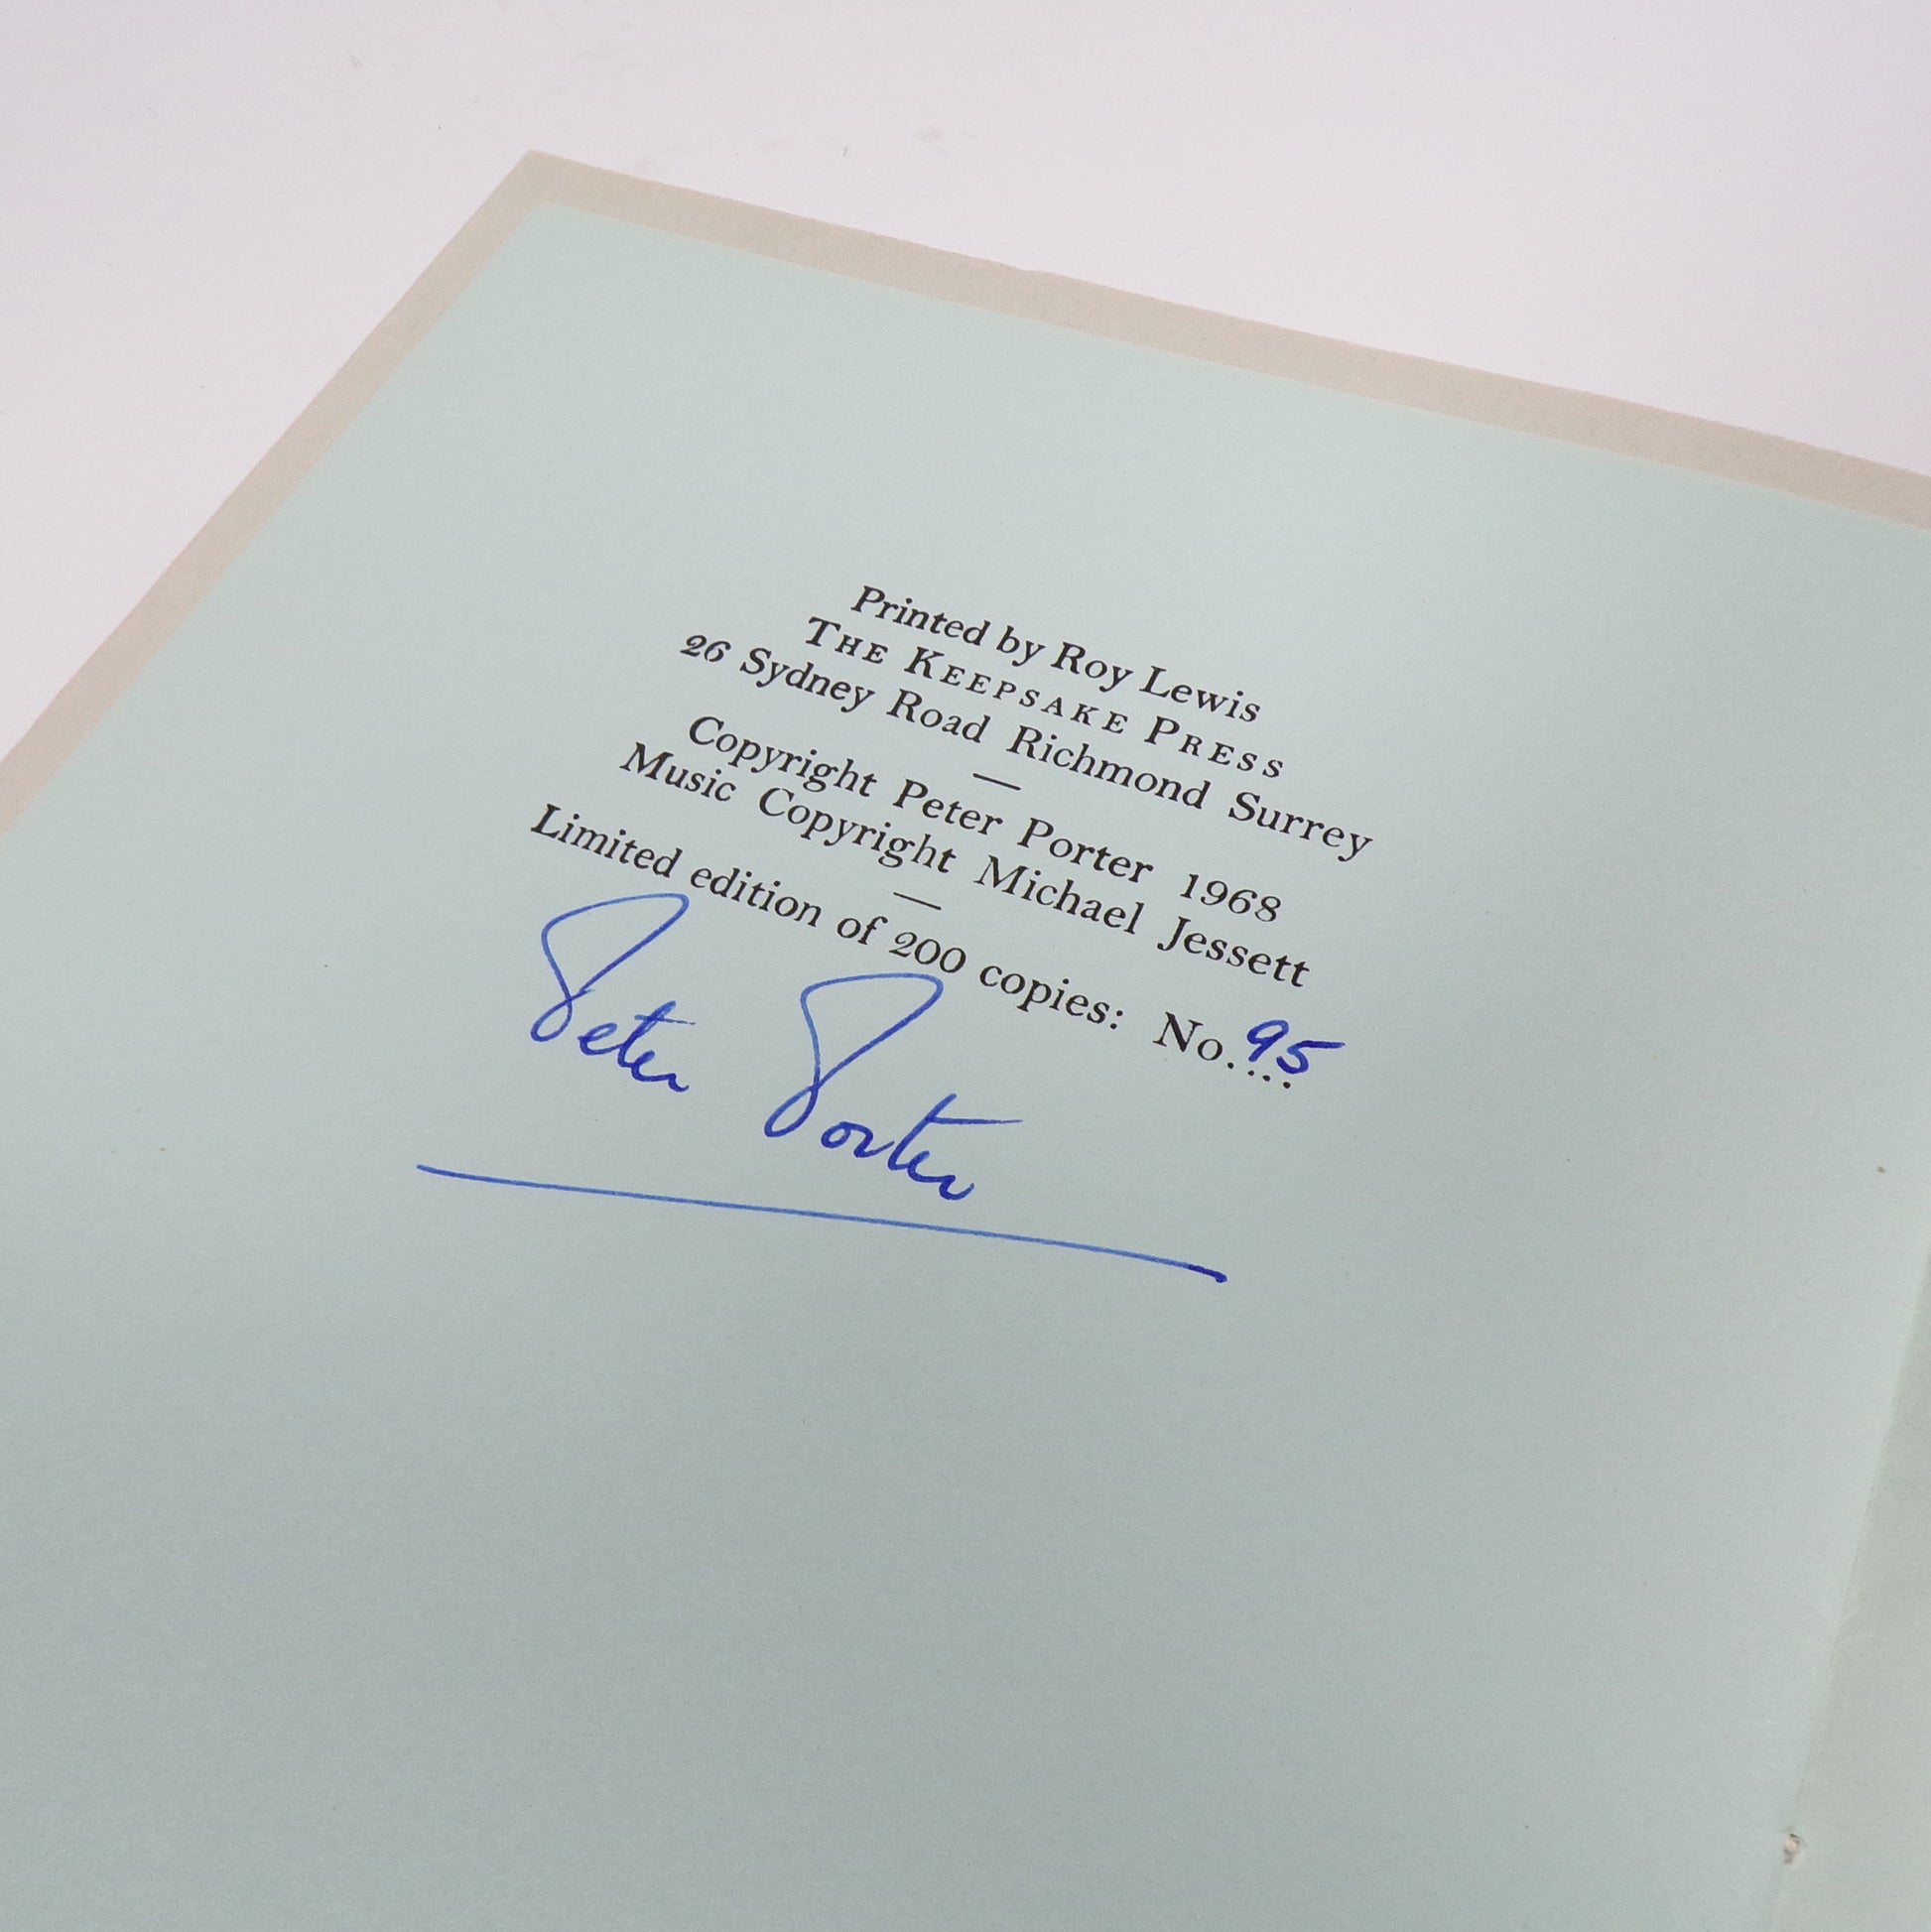 Printed by Roy Lewis
THE KEEPSAKE PRESS
26 Sydney Road Richmond Surrey
—
Copyright Peter Porter 1968
Music Copyright Michael Jessett
—
Limited edition of 200 copies: No....95
Peter Porter